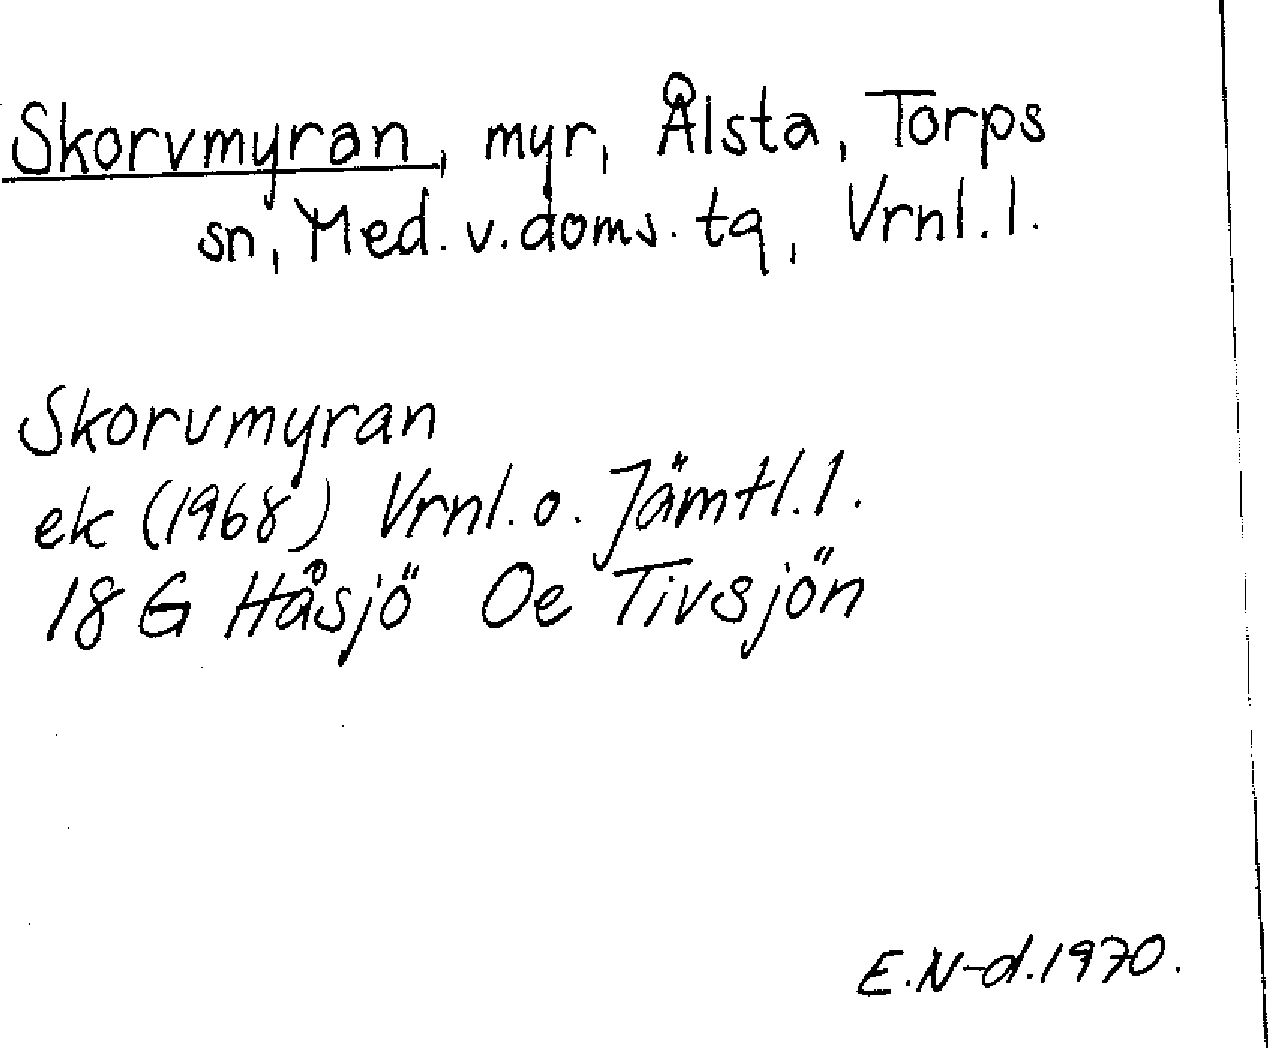 Skorvmyran, myr, Ålsta, Torps
sn, Med. v. doms. tq, Vrnl. l.
Skorvmyran
ek (1968) Vrnl. o. Jämtl. l.
18 G Håsjö Oe Tivsjön
E. N-d. 1970.